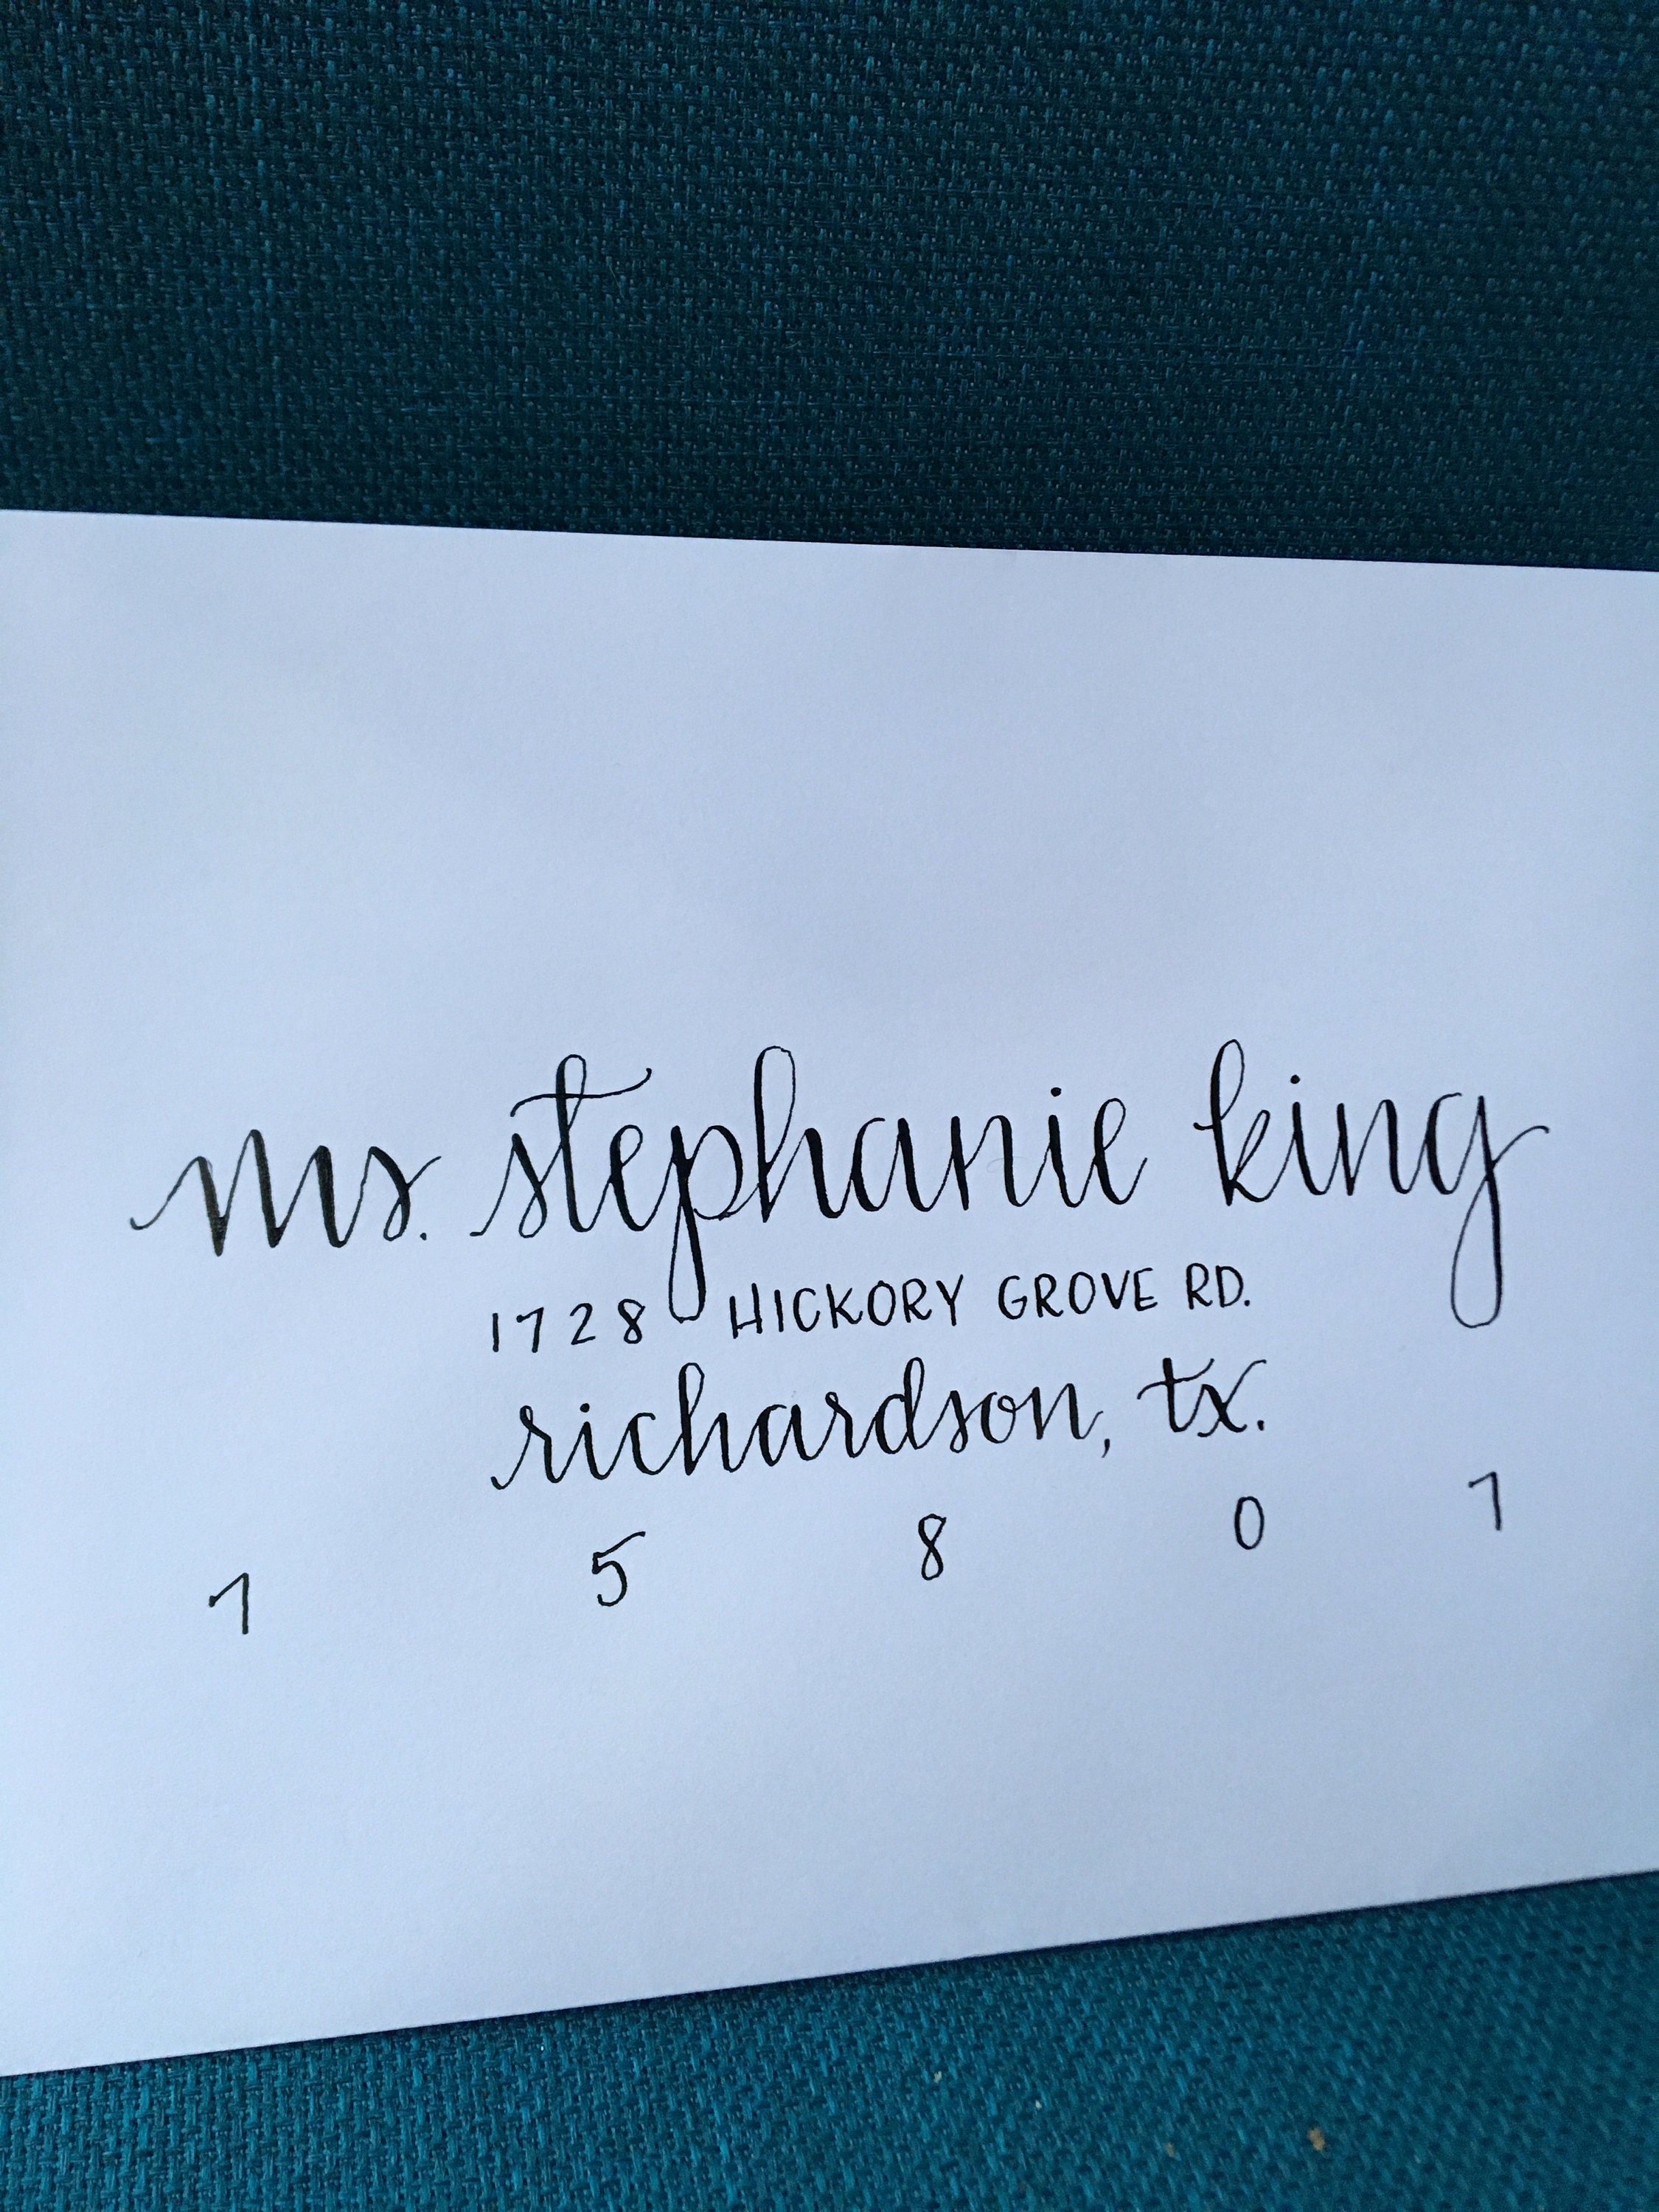 ms. stephanie king
1728 HICKORY GROVE RD.
richardson, tx.
7 5 8 0 7